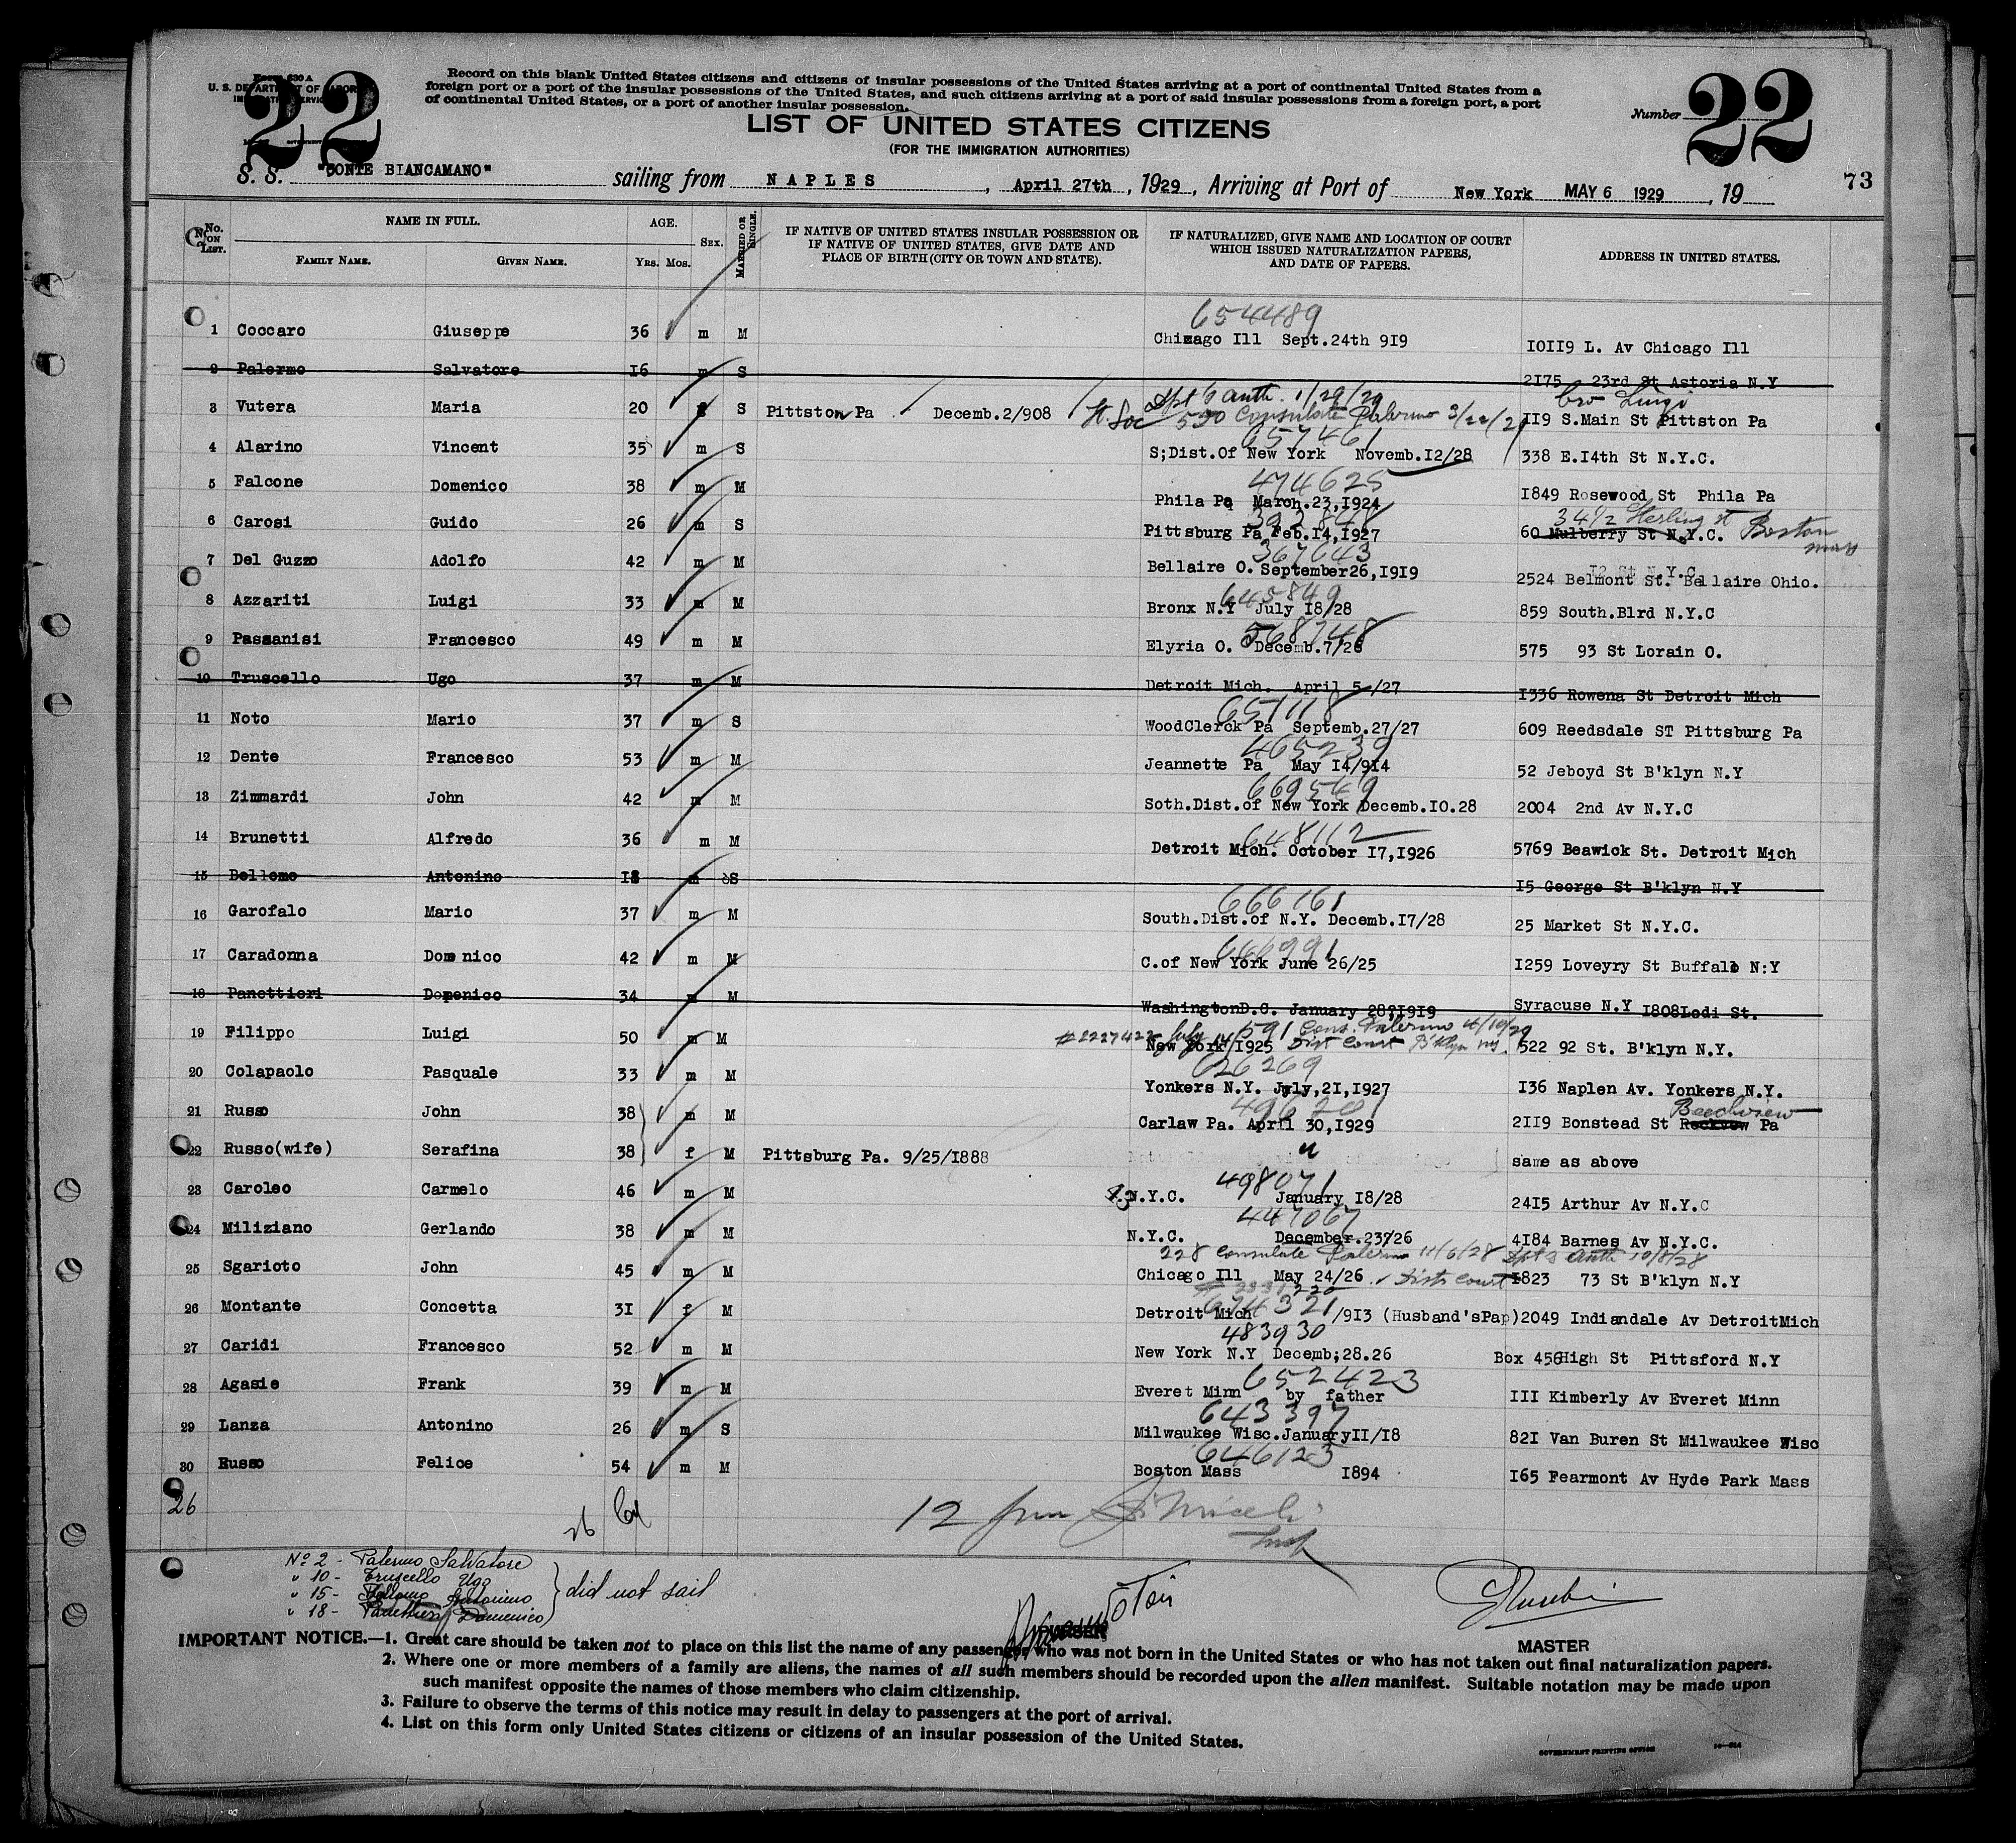 Form 630 A
U. S. DEPARTMENT OF LABOR
IMMIGRATION SERVICE
22
Record on this blank United States citizens and citizens of insular possessions of the United States arriving at a port of continental United States from a
foreign port or a port of the insular possessions of the United States, and such citizens arriving at a port of said insular possessions from a foreign port, a port
of continental United States, or a port of another insular possession.
Number 22
LIST OF UNITED STATES CITIZENS
(FOR THE IMMIGRATION AUTHORITIES)
S. S. "CONTE BIANCAMANO" sailing from NAPLES, April 27th, 1929, Arriving at Port of New York MAY 6 1929, 19
73
No. ON LIST. NAME IN FULL. AGE. SEX. MARRIED OR SINGLE. IF NATIVE OF UNITED STATES INSULAR POSSESSION OR IF NATIVE OF UNITED STATES, GIVE DATE AND PLACE OF BIRTH (CITY OR TOWN AND STATE). IF NATURALIZED, GIVE NAME AND LOCATION OF COURT WHICH ISSUED NATURALIZATION PAPERS, AND DATE OF PAPERS. ADDRESS IN UNITED STATES.
FAMILY NAME. GIVEN NAME. YRS. MOS.
654489
1 Coccaro Giuseppe 36 m M Chizago Ill Sept.24th 9I9 I0II9 L. Av Chicago Ill
2 Palermo Salvatore I6 m S 2I75 23rd St Astoria N.Y
Dpt auth. 1/29/29
3 Vutera Maria 20 S Pittston Pa Decemb.2/908 520 Consulate Palermo II9 S.Main St Pittston Pa
657461
4 Alarino Vincent 35 m S S;Dist.Of New York Novemb.I2/28 338 E.I4th St N.Y.C.
474625
5 Falcone Domenico 38 m M Phila Pa March.23,I924 I849 Rosewood St Phila Pa
392848
6 Carosi Guido 26 m S Pittsburg Pa Feb.I4,I927 60 Mulberry St N.Y.C. Boston Mass
367643
7 Del Guzzo Adolfo 42 m M Bellaire O. September26,I9I9 2524 Belmont St. Bellaire Ohio.
645849
8 Azzariti Luigi 33 m M Bronx N.Y July I8/28 859 South.Blrd N.Y.C
568748
9 Passanisi Francesco 49 m M Elyria O. Decemb.7/26 575 93 St Lorain O.
10 Truscello Ugo 37 m M Detroit Mich. April 5 /27 I336 Rowena St Detroit Mich
651118
11 Noto Mario 37 m S WoodClerck Pa Septemb.27/27 609 Reedsdale ST Pittsburg Pa
465239
12 Dente Francesco 53 m M Jeannette Pa May I4/9I4 52 Jeboyd St B'klyn N.Y
669549
13 Zimmardi John 42 m M Soth.Dist.of New York Decemb.I0.28 2004 2nd Av N.Y.C
648112
14 Brunetti Alfredo 36 m M Detroit Mich. October I7,I926 5769 Beawick St. Detroit Mich
15 Bellomo Antonino I8 m S I5 George St B'klyn N.Y
666161
16 Garofalo Mario 37 m M South.Dist.of N.Y. Decemb.I7/28 25 Market St N.Y.C.
17 Caradonna Domenico 42 m M C.of New York June 26/25 I259 Loveyry St Buffalo N:Y
18 Panettieri Domenico 34 m M WashingtonD.C. January 28?I9I9 Syracuse N.Y I808Lodi St.
#2227422 July 14/ 591 Cons. Palermo 4/10/29
19 Filippo Luigi 50 m M New York I925 Dist Court B'klyn NY. 522 92 St. B'klyn N.Y.
626269
20 Colapaolo Pasquale 33 m M Yonkers N.Y. July,2I,I927 I36 Naplen Av. Yonkers N.Y.
Beechview
21 Russo John 38 m M Carlaw Pa. April 30,I929 2II9 Bonstead St Pa
22 Russo(wife) Serafina 38 f M Pittsburg Pa. 9/25/I888 " same as above
498071
23 Caroleo Carmelo 46 m M N.Y.C. January I8/28 24I5 Arthur Av N.Y.C
447067
24 Miliziano Gerlando 38 m M N.Y.C. December.23?/26 4I84 Barnes Av N.Y.C.
228 Consulate Palermo 11/6/28 Dpt's auth 10/8/28
25 Sgarioto John 45 m M Chicago Ill May 24/26 Dist. Court I823 73 St B'klyn N.Y
674321
26 Montante Concetta 3I f M Detroit Mich /9I3 (Husband'sPap) 2049 Indiandale Av DetroitMich
483930
27 Caridi Francesco 52 m M New York N.Y Decemb;28.26 Box 456High St Pittsford N.Y
652423
28 Agasie Frank 39 m M Everet Minn by father III Kimberly Av Everet Minn
643397
29 Lanza Antonino 26 m S Milwaukee Wisc.JanuaryII/I8 82I Van Buren St Milwaukee Wisc
646123
30 Russo Felice 54 m M Boston Mass I894 I65 Fearmont Av Hyde Park Mass
26
26
No 2 - Palermo Salvatore
" 10 - Truscello Ugo
" 15 - Bellomo Antonino
" 18 - Panettieri Domenico
did not sail
MASTER
IMPORTANT NOTICE.—1. Great care should be taken not to place on this list the name of any passenger who was not born in the United States or who has not taken out final naturalization papers.
2. Where one or more members of a family are aliens, the names of all such members should be recorded upon the alien manifest. Suitable notation may be made upon
such manifest opposite the names of those members who claim citizenship.
3. Failure to observe the terms of this notice may result in delay to passengers at the port of arrival.
4. List on this form only United States citizens or citizens of an insular possession of the United States.
GOVERNMENT PRINTING OFFICE